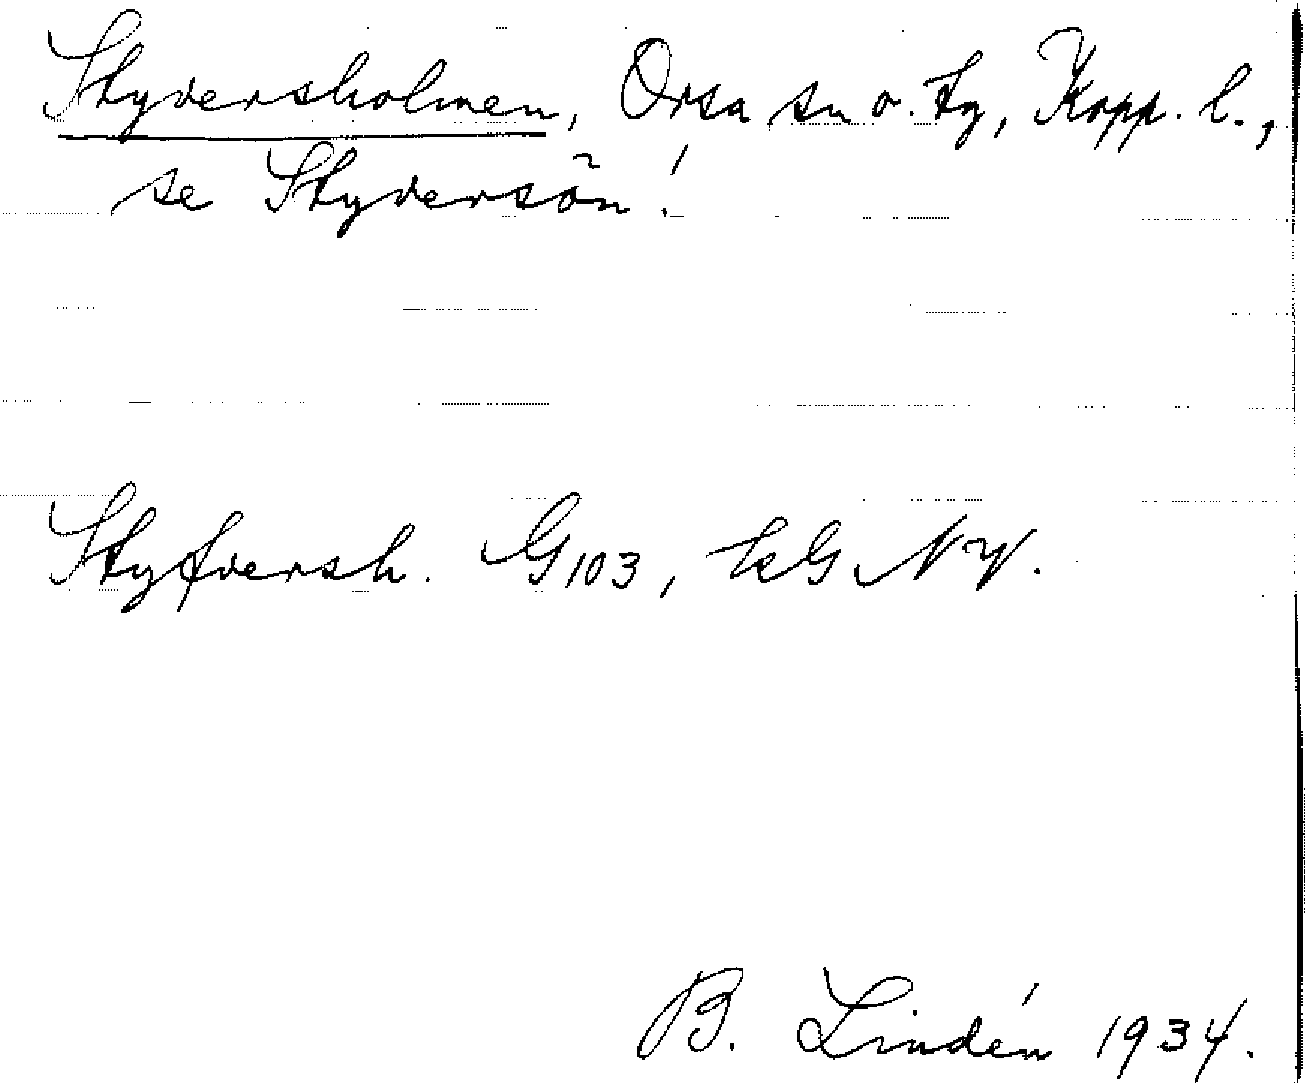 Styversholmen, Orsa sn o. tg, Kopp. l.,
se Styversön!
Styfversh. G103, LG NV.
B. Lindén 1934.